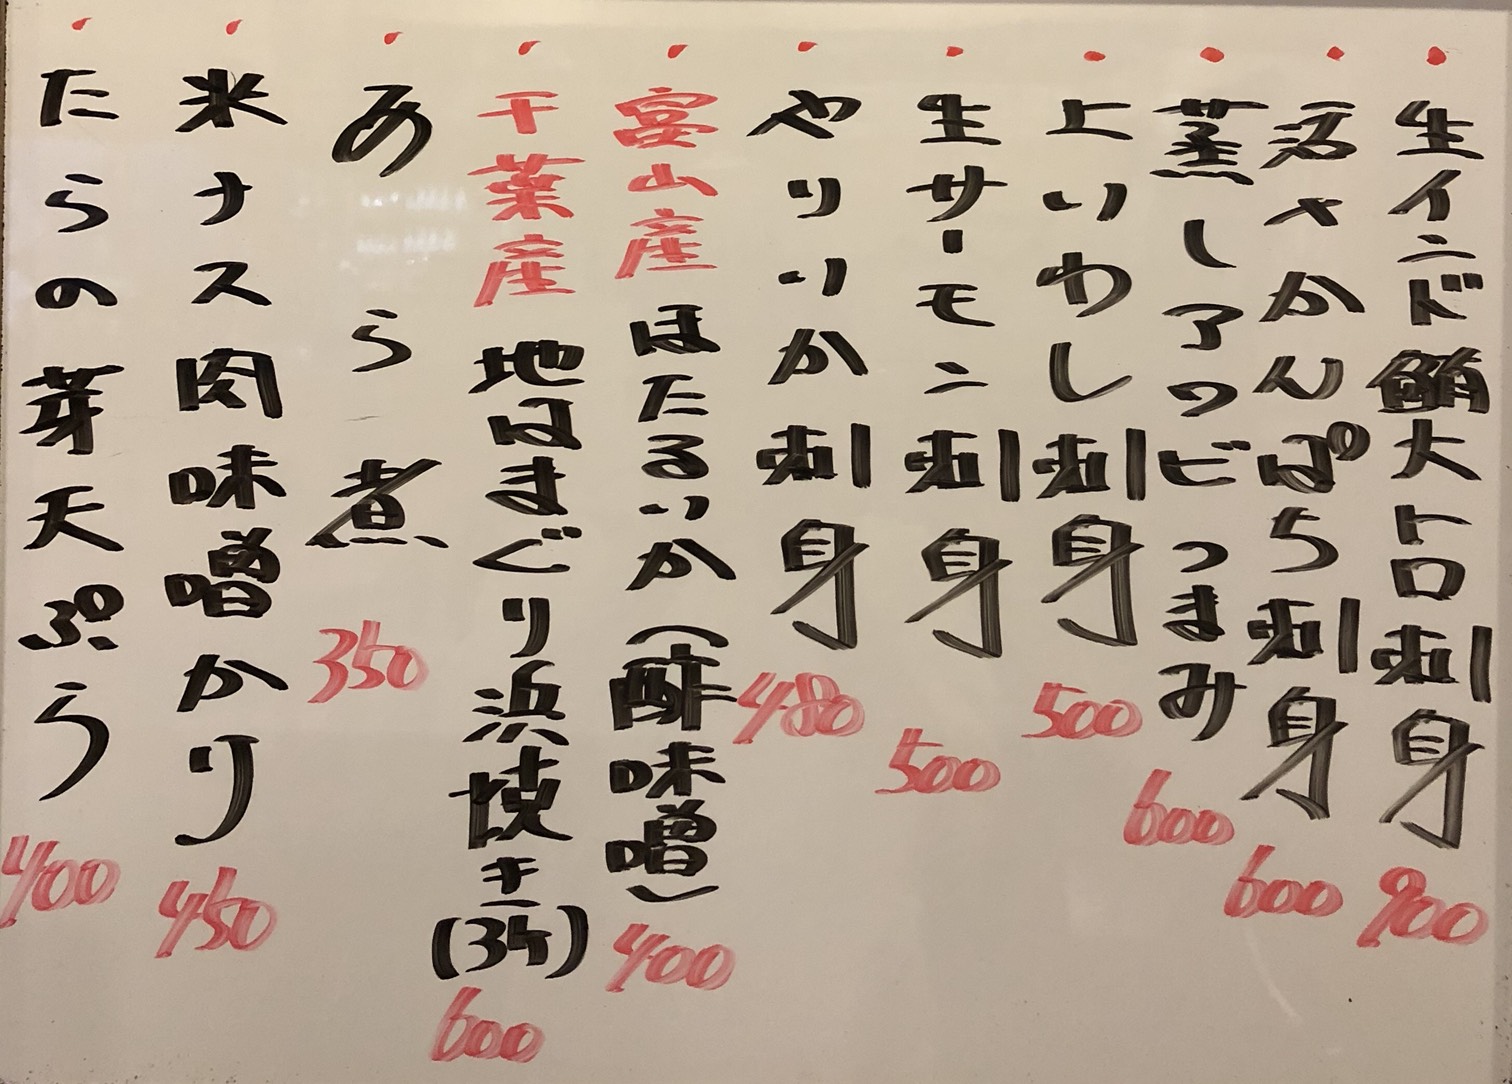 生インド鮪大トロ刺身 900
活〆かんぱち刺身 600
蒸しアワビつまみ 600
上いわし刺身 500
生サーモン刺身 500
やりいか刺身 480
富山産 ほたるいか(酢味噌) 400
千葉産 地はまぐり浜焼き(3ケ) 600
あら煮 350
米ナス肉味噌かけ 450
たらの芽天ぷら 400